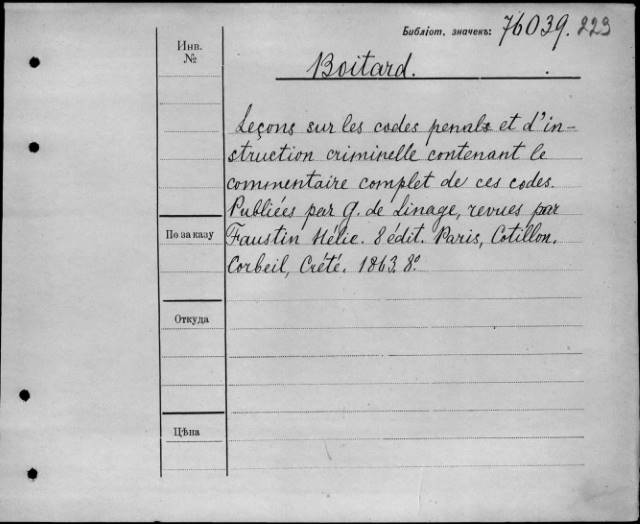 Библіот. значекъ: 76039. 223
Инв.
№
Boitard.
Leçons sur les codes penals et d'in-
struction criminelle contenant le
commentaire complet de ces codes.
Publiées par G. de Linage, revues par
По заказу
Faustin Hélie. 8 édit. Paris, Cotillon.
Corbeil, Crété. 1863. 8°.
Откуда
Цѣна